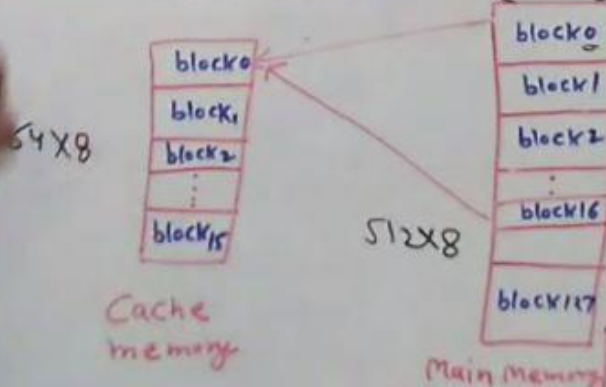 block0
block1
block2
block15
64X8
Cache
memory
block0
block1
block2
block16
block127
512X8
Main Memory